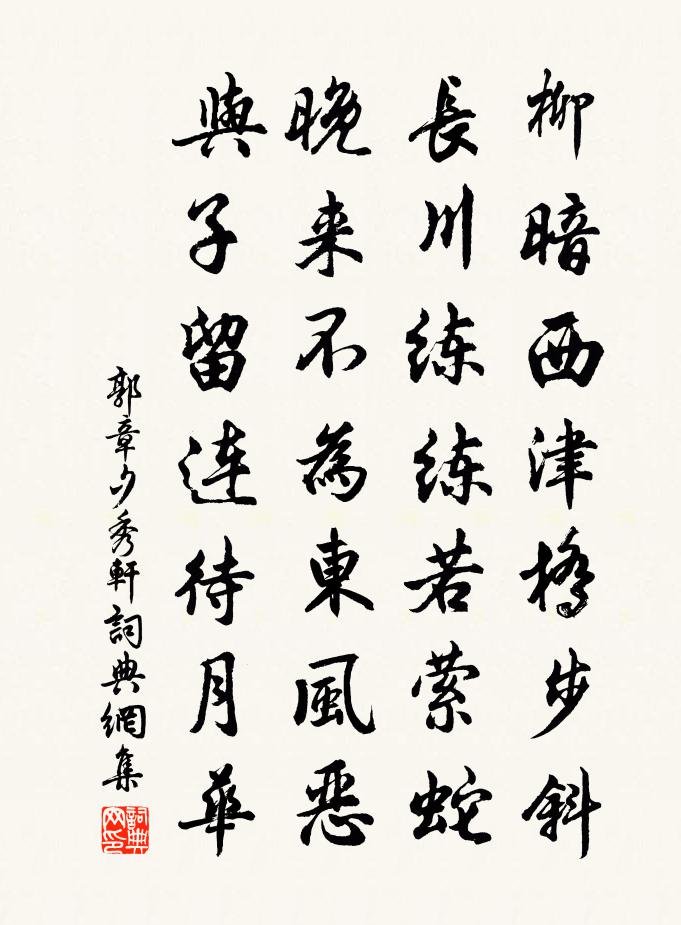 柳暗西津橋步斜
長川练练若萦蛇
晚来不為東風惡
與子留连待月華
郭章夕秀軒詞典網集
詞典网印